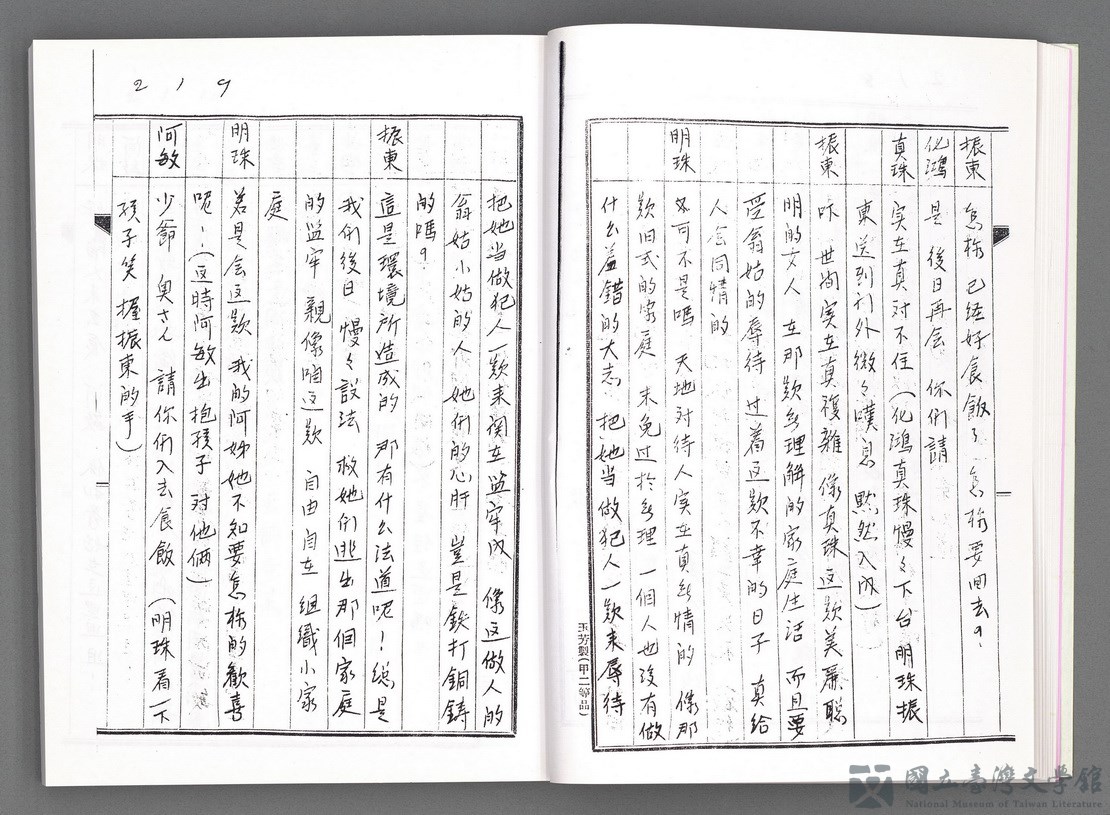 振東 怎栋 已经好食飯了 怎栋要回去?
化鴻 是 後日再会 你们請
真珠 实在真对不住(化鴻真珠慢々下台明珠振
東送到门外微々嘆息 默然入内)
振東 咋 世间实在真複雜 像真珠这款美麗聪
明的女人 在那款無理解的家庭生活 而且要
受翁姑的辱待 过着这款不幸的日子 真给
人会同情的
明珠 可不是嗎 天地对待人实在真無情的 像那
款旧式的家庭 未免过於無理 一個人也没有做
什么羞錯的大志 把她当做犯人一款来辱待
玉芳製(甲二等品)
219
把她当做犯人一款来関在监牢内 像这做人的
翁姑小姑的人 她们的心肝 豈是鉄打銅鋳
的嗎?
振東 這是環境所造成的 那有什么法道呢!總是
我们後日 慢々設法 救她们逃出那個家庭
的监牢 親像咱这款 自由自在 组織小家
庭
明珠 若是会这款 我的阿姊她不知要怎栋的歡喜
呢!(这時阿敏出 抱孩子 对他倆)
阿敏 少爺 奥さん 請你们入去食飯 (明珠看一下
孩子笑 握振東的手)
國立臺灣文學館
National Museum of Taiwan Literature